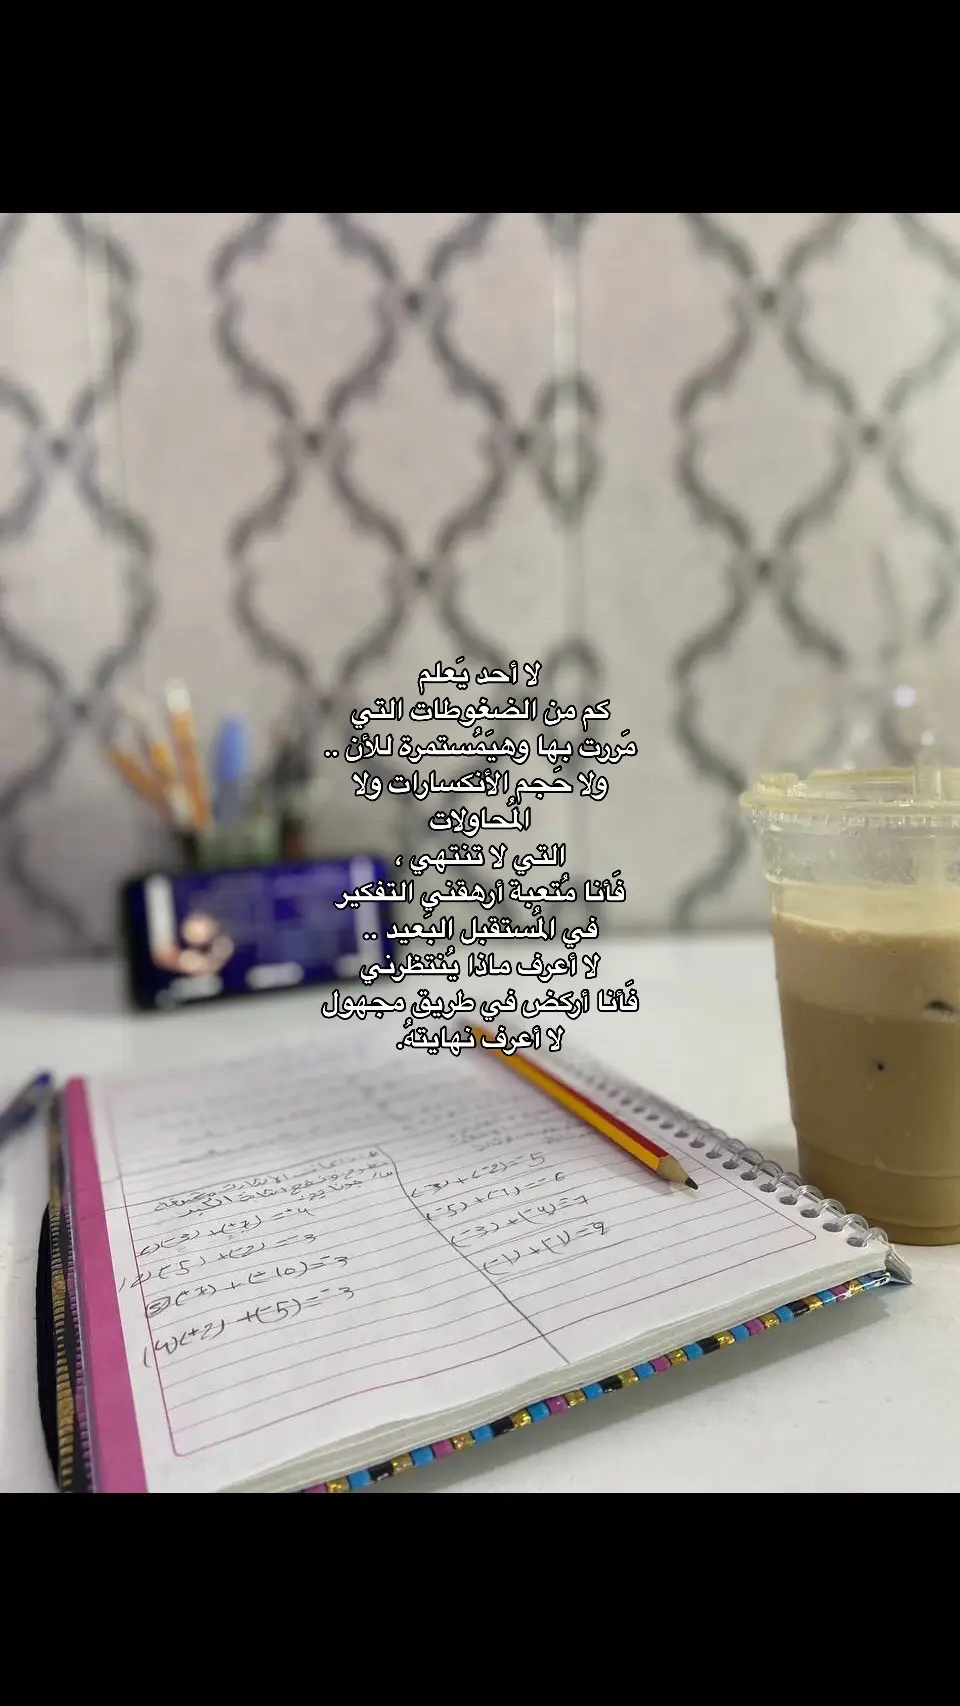 لا أحد يَعلم
كم من الضغوطات التي
مَررت بها وهيَمُستمرة للأن ..
ولا حَجم الأنكسارات ولا
المُحاولات
التي لا تنتهي ،
فَأنا مُتعبة أرهقني التفكير
في المُستقبل البَعيد ..
لا أعرف ماذا يُنتظرني
فَأنا أركض في طريق مجهول
لا أعرف نهايتهُ.
(-3)+(-2)=-5
(-5)+(-1)=-6
(-3)+(-4)=-7
1)(-3)+(+7)=+4
2)(-5)+(+2)=-3
3)(+7)+(-10)=-3
(4)(+2)+(-5)=-3